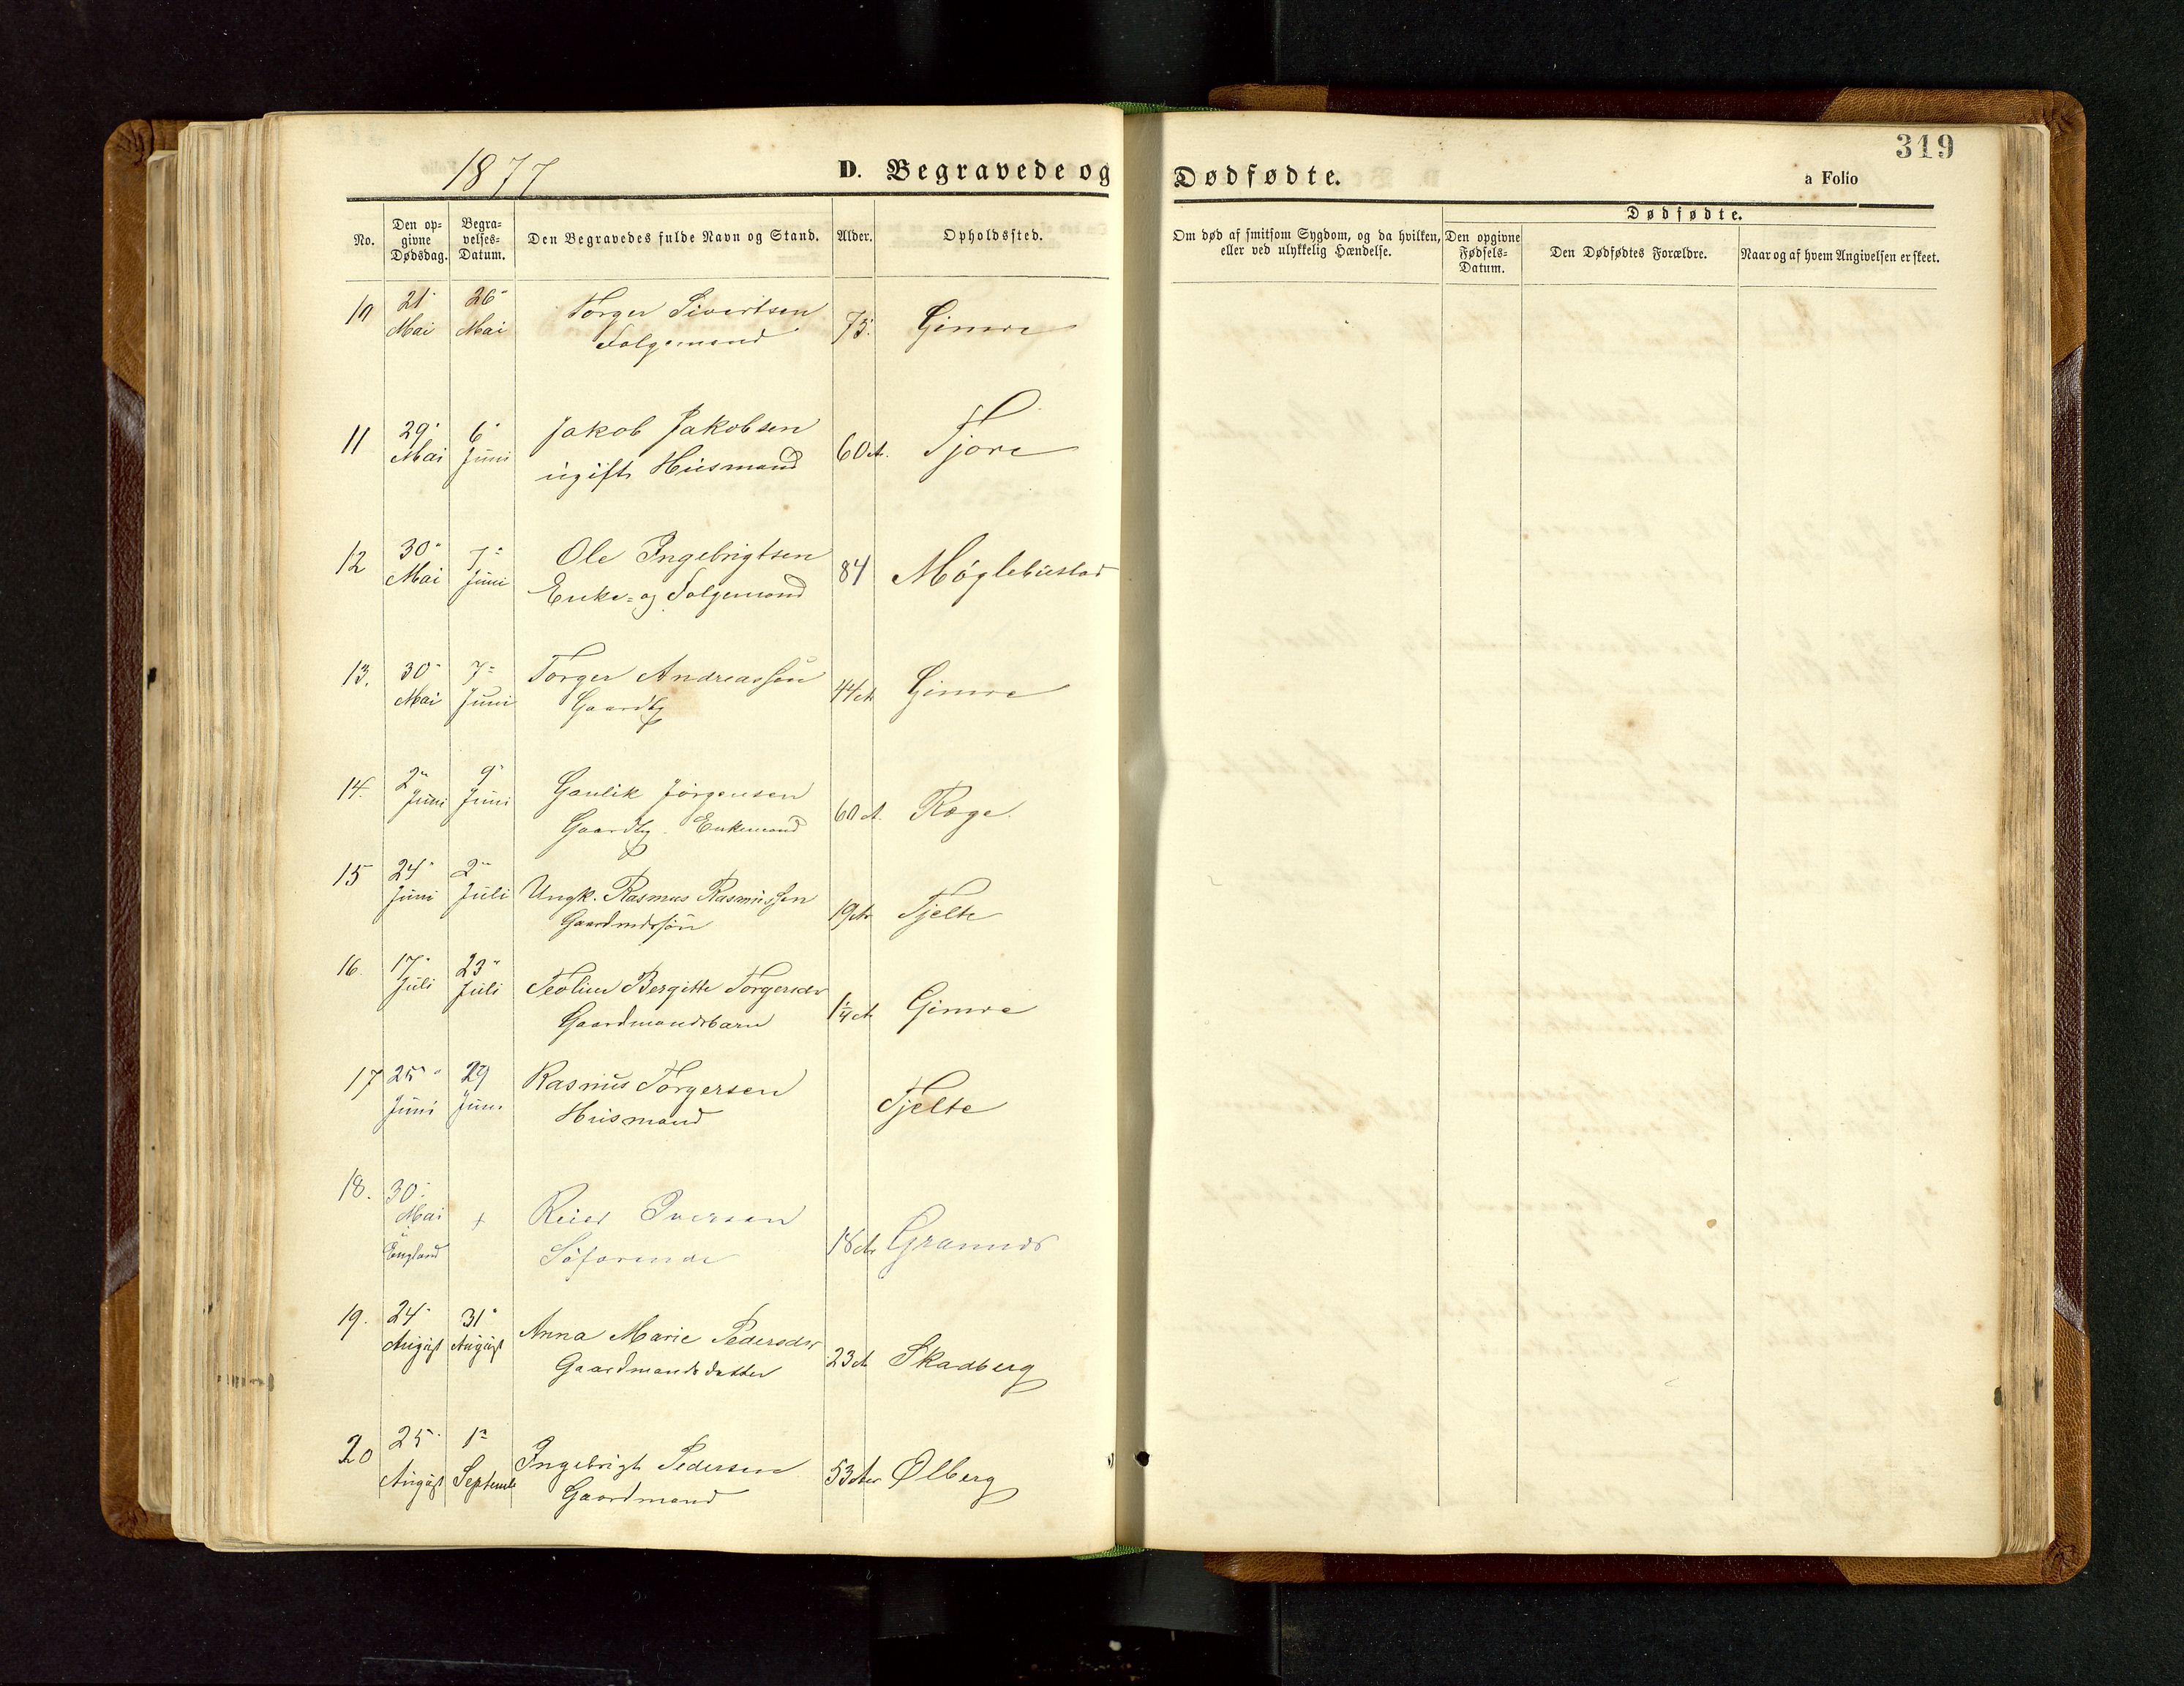 1877
D. Begravede og Dødfødte.
319
a Folio
No.
Den opgivne Dødsdag.
Begravelses-Datum.
Den Begravedes fulde Navn og Stand.
Alder.
Opholdssted.
Om død af smitsom Sygdom, og da hvilken, eller ved ulykkelig Hændelse.
Dødfødte.
Den opgivne Fødsels-Datum.
Den Dødfødtes Forældre.
Naar og af hvem Angivelsen er skeet.
10 21 Mai 26 Mai Torger Sivertsen 75. Gimre
Folgemand
11 29 Mai 6 Juni Jakob Jakobsen 60 A. Tjore
ugift Husmand
12 30 Mai 7 Juni Ole Ingebrigtsen 84 Møglebustad
Enke- og Folgemand
13. 30 Mai 7 Juni Torger Andreassen 44 A Gimre
Gaardbg
14. 2 Juni 9 Juni Gaulik Jørgensen 60 A. Røge
Gaardbg. Enkemand
15 24 Juni 2 Juli Ungk. Rasmus Rasmussen 19 Ar Tjelte
Gaardmdssøn
16. 17 Juli 23 Juli Teoline Bergitte Torgersdr 1/4 A Gimre
Gaardmandsbarn
17 25 Juni 29 Juni Rasmus Torgersen Tjelte
Husmand
18. 30 Mai England + Reier Iversen 18 A Grannes
Søfarende
19. 24 August 31 August Anna Marie Pedersdr 23 A Skadberg
Gaardmandsdatter
20 25 August 1 Septemb Ingebrigt Pedersen 53 Aar Ølberg
Gaardmand